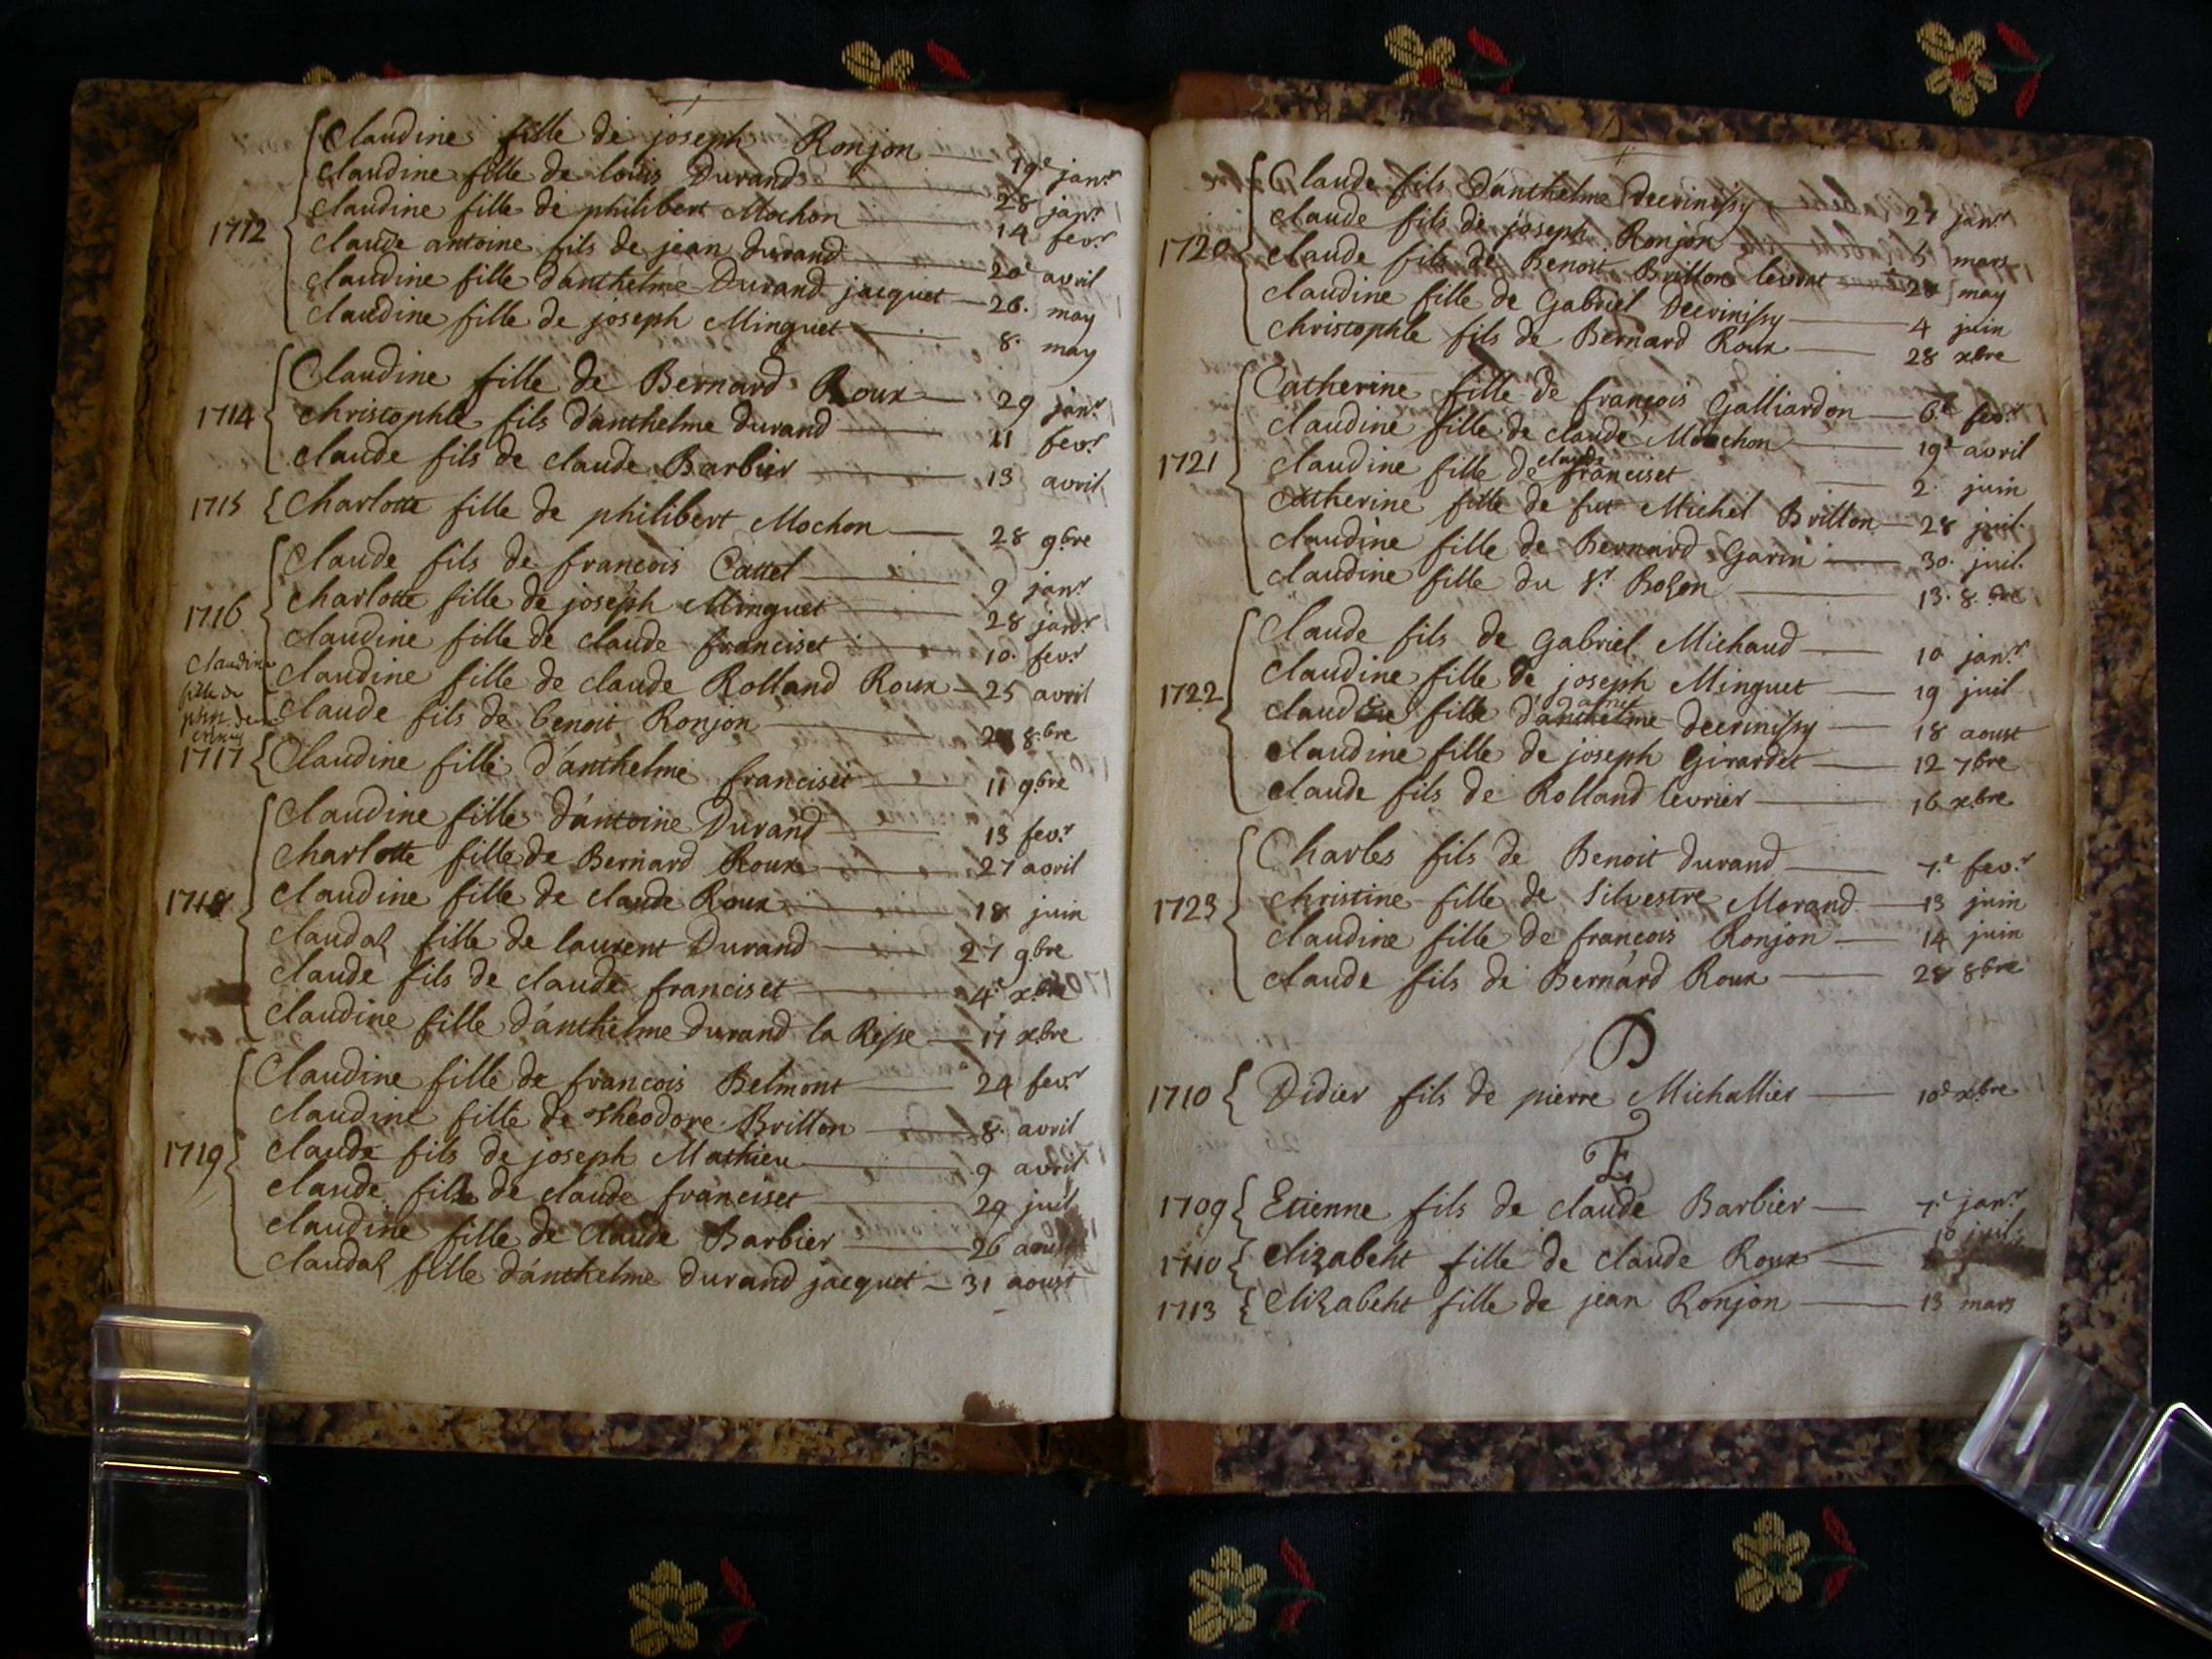 Claudine fille de joseph Ronjon — 19e janr
claudine fille de louis Durand — 28 janr
claudine fille de philibert Mochon — 14 fevr
1712 { claude antoine fils de jean durand — 20e avril
claudine fille d'anthelme Durand jacquet — 26. may
claudine fille de joseph Minguet — 8. may
Claudine fille de Bernard Roux — 29 janr
1714 { christophle fils d'anthelme durand — 11 fevr
claude fils de claude Barbier — 13 avril
1715 { Charlotte fille de philibert Mochon — 28 9bre
Claude fils de francois Cattel — 9 janr
charlotte fille de joseph Minguet — 28 janr
1716 { claudine fille de claude franciset — 10. fevr
claudine fille de claude Rolland Roux — 25 avril
claude fils de benoit Ronjon — 8.bre
claudine
fille de
1717 { Claudine fille d'anthelme franciset — 11 9bre
Claudine fille d'antoine Durand — 13 fevr
charlotte fille de Bernard Roux — 27 avril
1718 { claudine fille de claude Roux — 18 juin
claudaz fille de laurent Durand — 27 9bre
claude fils de claude franciset — 4e xbre
claudine fille d'anthelme durand la Resse — 17 xbre
Claudine fille de francois Belmont — 24 fevr
claudine fille de theodore Brillon — 8. avril
1719 { claude fils de joseph Mathieu — 9 avril
claude fils de claude franciset — 29 juil
claudine fille de claude Barbier — 26 aoust
claudaz fille d'anthelme durand jacquet — 31 aoust
Claude fils d'anthelme decrinissy — 27 janr
claude fils de joseph Ronjon — 5 mars
1720 { claude fils de Benoit Brillon — may
claudine fille de Gabriel Decrinissy — 4 juin
christophle fils de Bernard Roux — 28 xbre
Catherine fille de francois Galliardon — 6e fevr
claudine fille de claude Mochon — 19e avril
1721 { claudine fille de claude franciset — 2. juin
catherine fille de fut Michel Brillon — 28 juil.
claudine fille de Bernard Garin — 30. juil.
claudine fille du Sr Bozon — 13. 8.bre
Claude fils de Gabriel Michaud — 10 janr
claudine fille de joseph Minguet — 19 juil
1722 { claudine fille d'anthelme decrinissy — 18 aoust
claudine fille de joseph Girardet — 12 7bre
claude fils de Rolland levrier — 16 xbre
Charles fils de Benoit durand — 7.e fevr
1723 { christine fille de Silvestre Morand — 13 juin
claudine fille de francois Ronjon — 14 juin
claude fils de Bernard Roux — 28 8bre
D
1710 { Didier fils de pierre Michallier — 10e xbre
E
1709 { Etienne fils de claude Barbier — 7e janr
1710 { elizabeht fille de claude Roux — 10 juil.
1713 { elizabeht fille de jean Ronjon — 13 mars